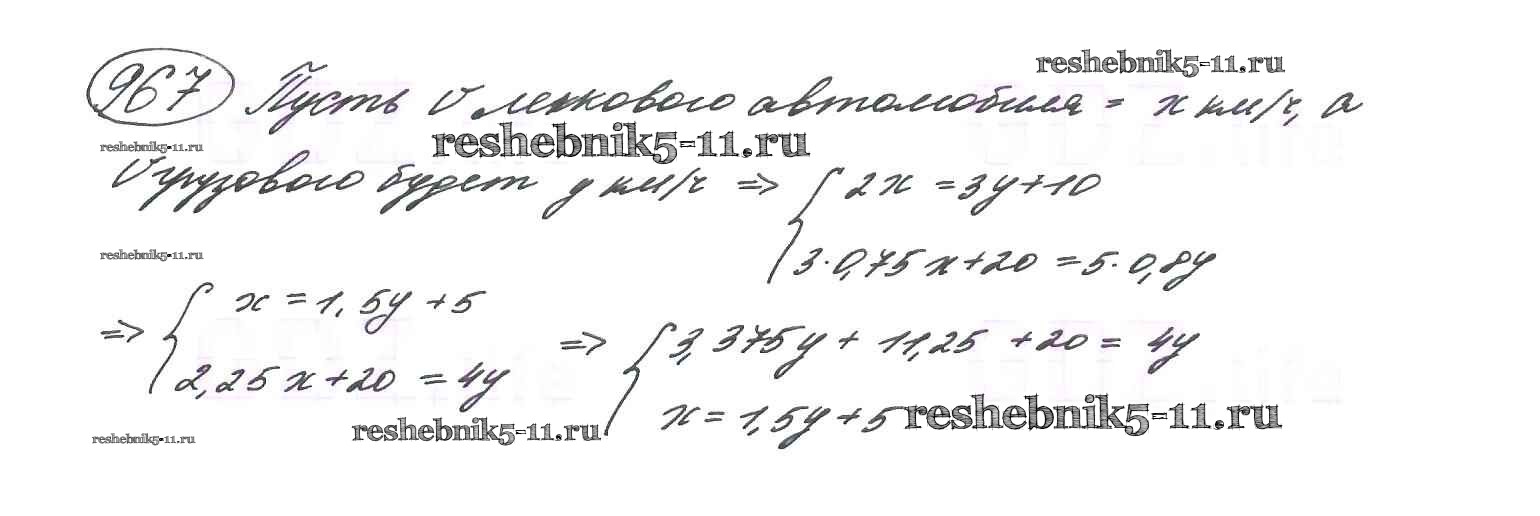 reshebnik5-11.ru
967 Пусть υ легкового автомобиля = x км/ч, а
reshebnik5-11.ru reshebnik5-11.ru
υ грузового будет y км/ч => { 2x = 3y+10
reshebnik5-11.ru
3·0,75x+20 = 5·0,8y
=> { x = 1,5y+5
2,25x+20 = 4y
=> { 3,375y + 11,25 + 20 = 4y
x = 1,5y+5
reshebnik5-11.ru
reshebnik5-11.ru
reshebnik5-11.ru